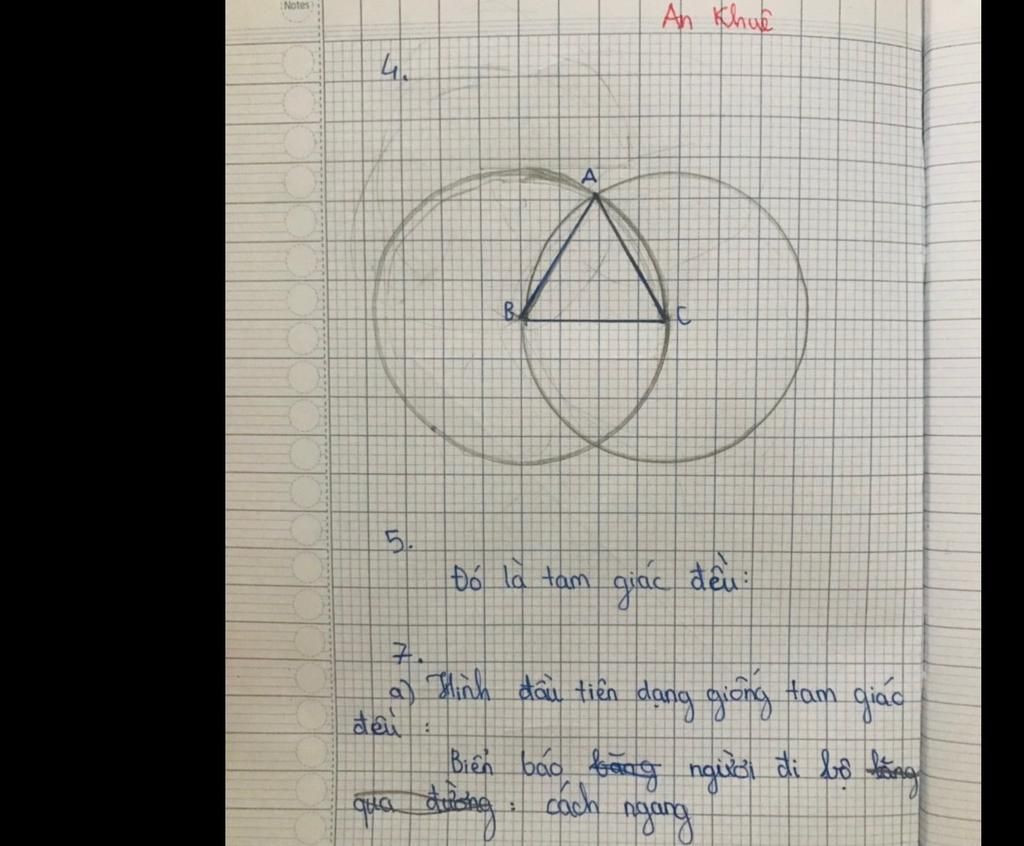 Notes
An Khuê
4.
A
B
C
5.
Đó là tam giác đều:
7.
a) Hình đầu tiên dạng giống tam giác
đều :
Biển báo băng người đi bộ băng
qua đường : cách ngang